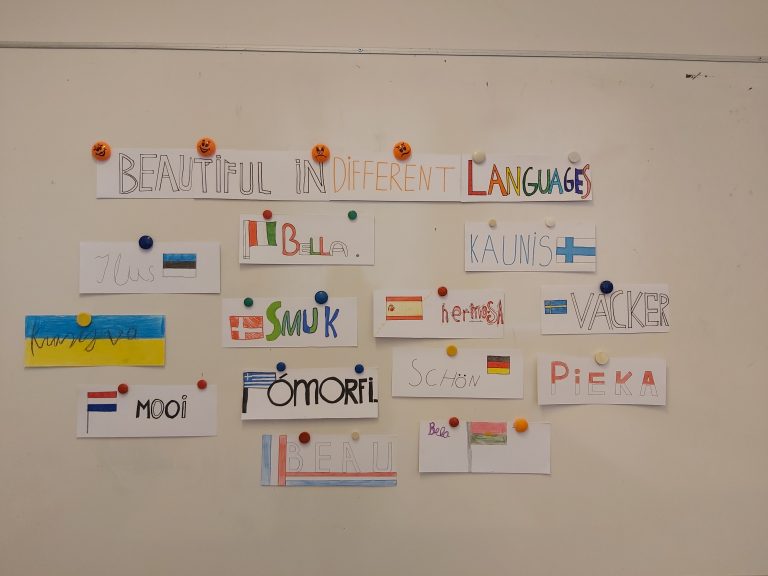 BEAUTIFUL IN DIFFERENT LANGUAGES
BELLA.
KAUNIS
Ilus
VACKER
SMUK
hermosA
SCHÖN
PiEKA
MOOi
ÓMORFI
Bela
BEAU